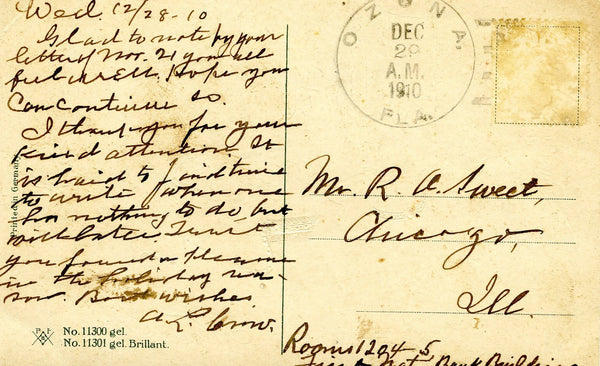 Wed. 12/28-10
Glad to note by your
letter of Nov. 21 you all
feel well. Hope you
can continue so.
I thank you for your
kind attention. It
is hard to find time
to write when one
has nothing to do, but
will later. Trust
you found pleasure
in the holiday sea-
son. Best wishes
A L Crow.
Printed in Germany
P. F.
No. 11300 gel.
No. 11301 gel. Brillant.
OZONA, FLA.
DEC
29
A.M.
1910
Mr. R. A. Sweet,
Chicago,
Ill.
Rooms 1204-5
First Nat Bank Building